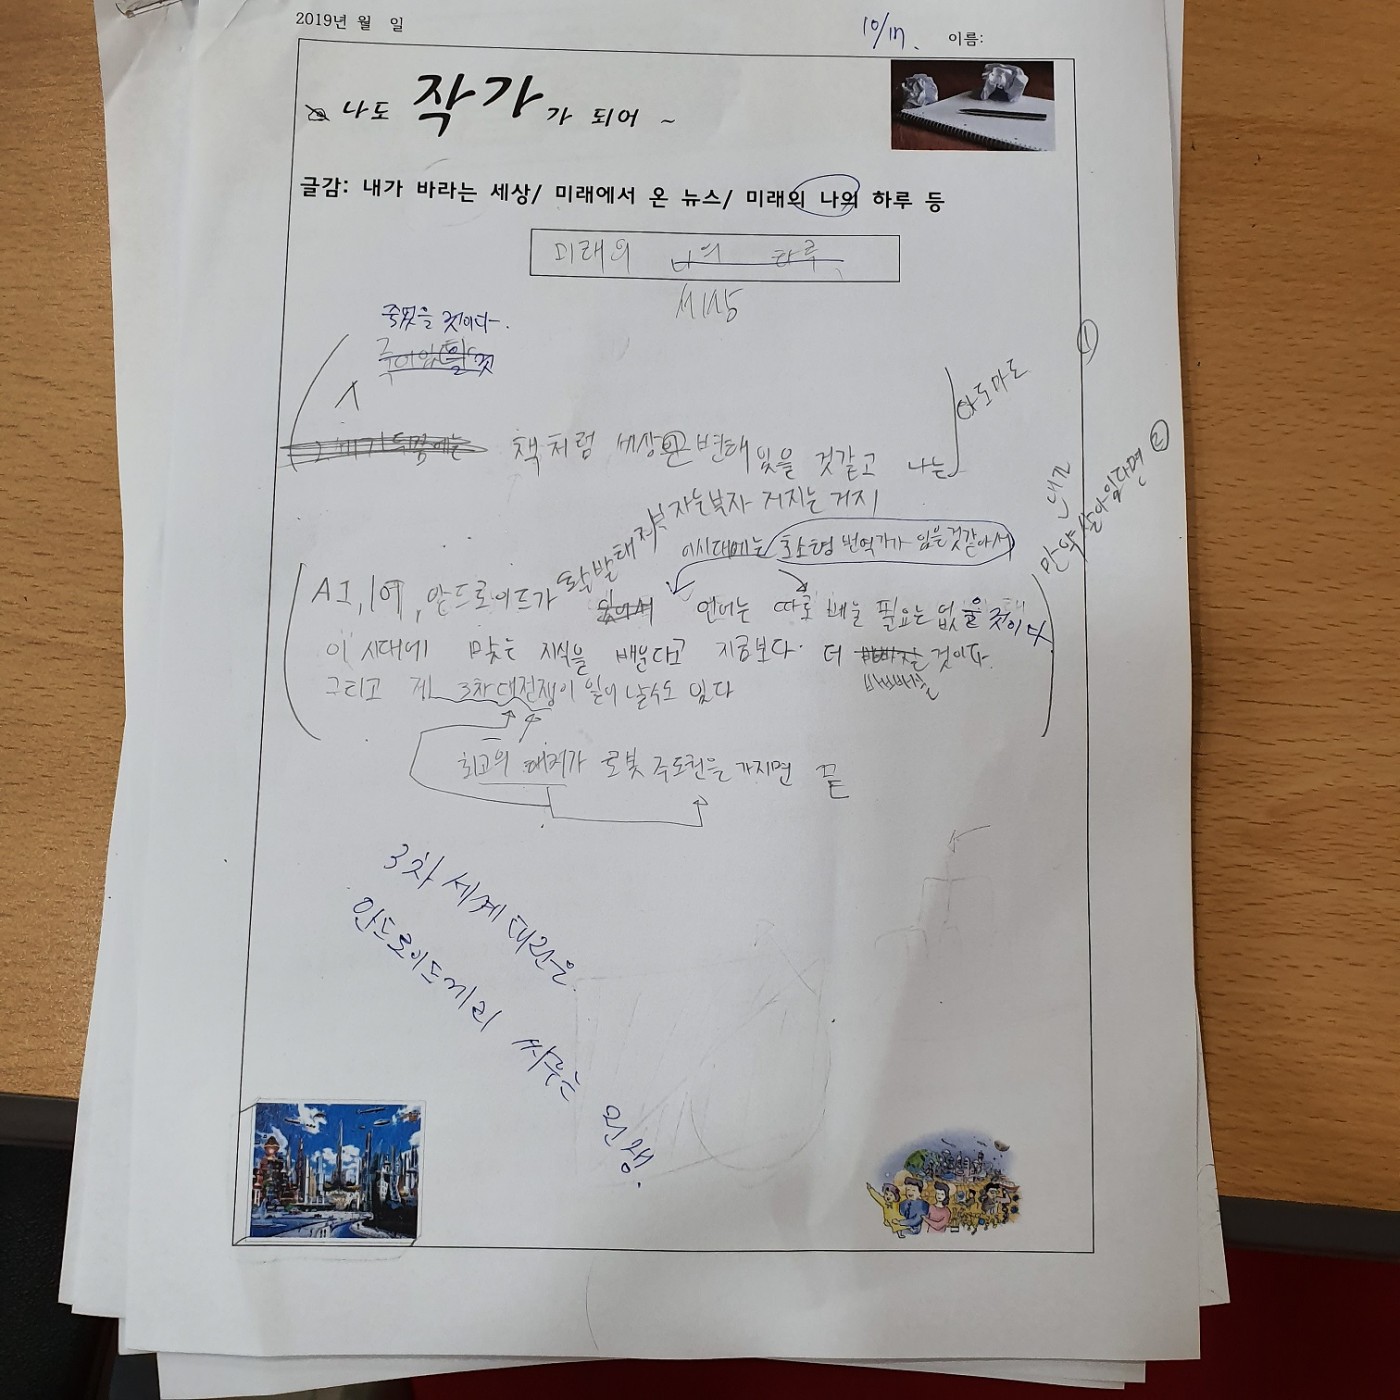 2019년 월 일
10/17. 이름:
나도 작가가 되어 ~
글감: 내가 바라는 세상/ 미래에서 온 뉴스/ 미래의 나의 하루 등
미래의 나의 하루
세상
죽었을 것이다.
①
아도마도
책처럼 세상은 변해있을 것같고 나는
②
만약 내가 살아있다면
부자는부자 거지는 거지
이시대에는 초소형 번역가가 있을것같아서
AI, 안드로이드가 언어는 따로 배울 필요는 없을 것이다
이 시대에 맞는 지식을 배운다고 지금보다 더 바쁘질 것이다.
그리고 제 3차대전쟁이 일어 날수도 있다
최고의 해커가 로봇 주도권을 가지면 끝
3차 세계 대전은
안드로이드끼리 싸우는 전쟁.